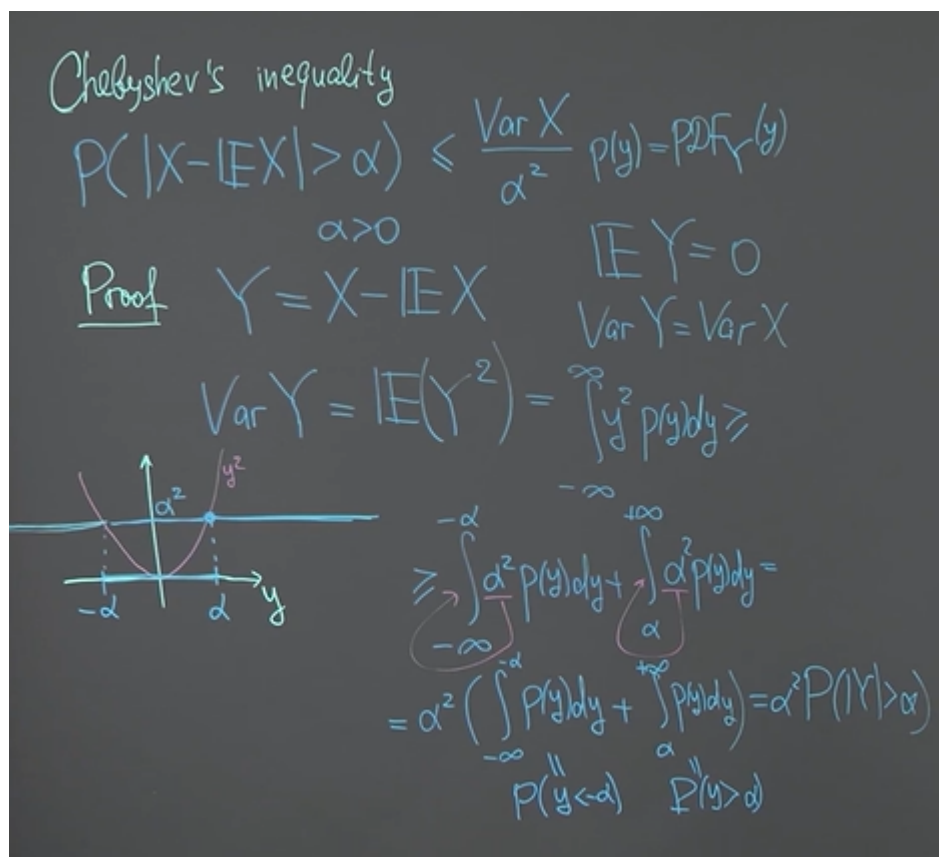 Chebyshev's inequality
P(|X-𝔼X|>α) ≤ Var X / α² p(y)=PDF_Y(y)
α>0
𝔼Y=0
Proof Y = X-𝔼X
Var Y = Var X
Var Y = 𝔼(Y²) = ∫_{-∞}^{∞} y² p(y)dy ≥
y²
α²
-α α y
≥ ∫_{-∞}^{-α} α² p(y)dy + ∫_{α}^{+∞} α² p(y)dy =
= α² ( ∫_{-∞}^{-α} p(y)dy + ∫_{α}^{+∞} p(y)dy ) = α² P(|Y|>α)
P(y<-α) P(y>α)